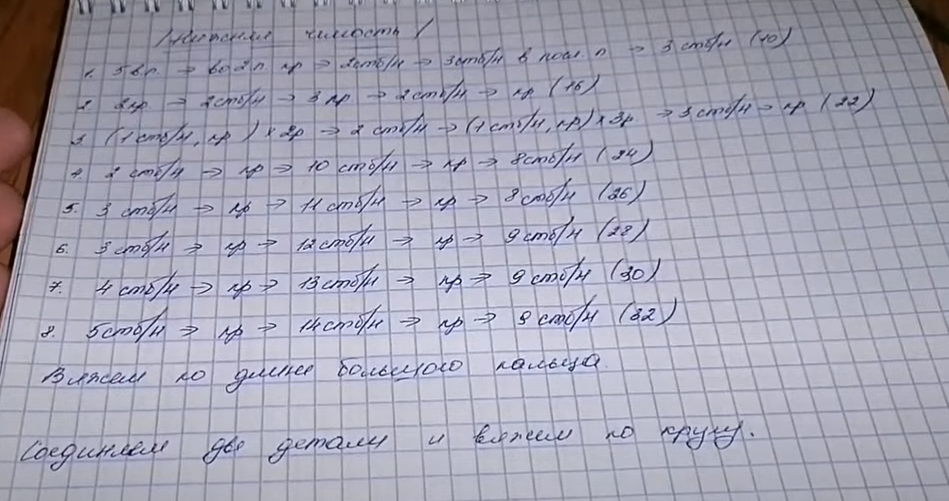 Нижняя челюсть /
1. 5 вп → во 2 п пр → 2 стб/н → 3 стб/н в посл. п → 3 стб/н (10)
2. 2 пр → 2 стб/н → 3 пр → 2 стб/н → пр (16)
3. (1 стб/н, пр) × 2р → 2 стб/н → (1 стб/н, пр) × 3р → 3 стб/н → пр (22)
4. 2 стб/н → пр → 10 стб/н → пр → 8 стб/н (24)
5. 3 стб/н → пр → 11 стб/н → пр → 8 стб/н (26)
6. 3 стб/н → пр → 12 стб/н → пр → 9 стб/н (28)
7. 4 стб/н → пр → 13 стб/н → пр → 9 стб/н (30)
8. 5 стб/н → пр → 14 стб/н → пр → 9 стб/н (32)
Вяжем по длине большого пальца.
Соединяем две детали и вяжем по кругу.